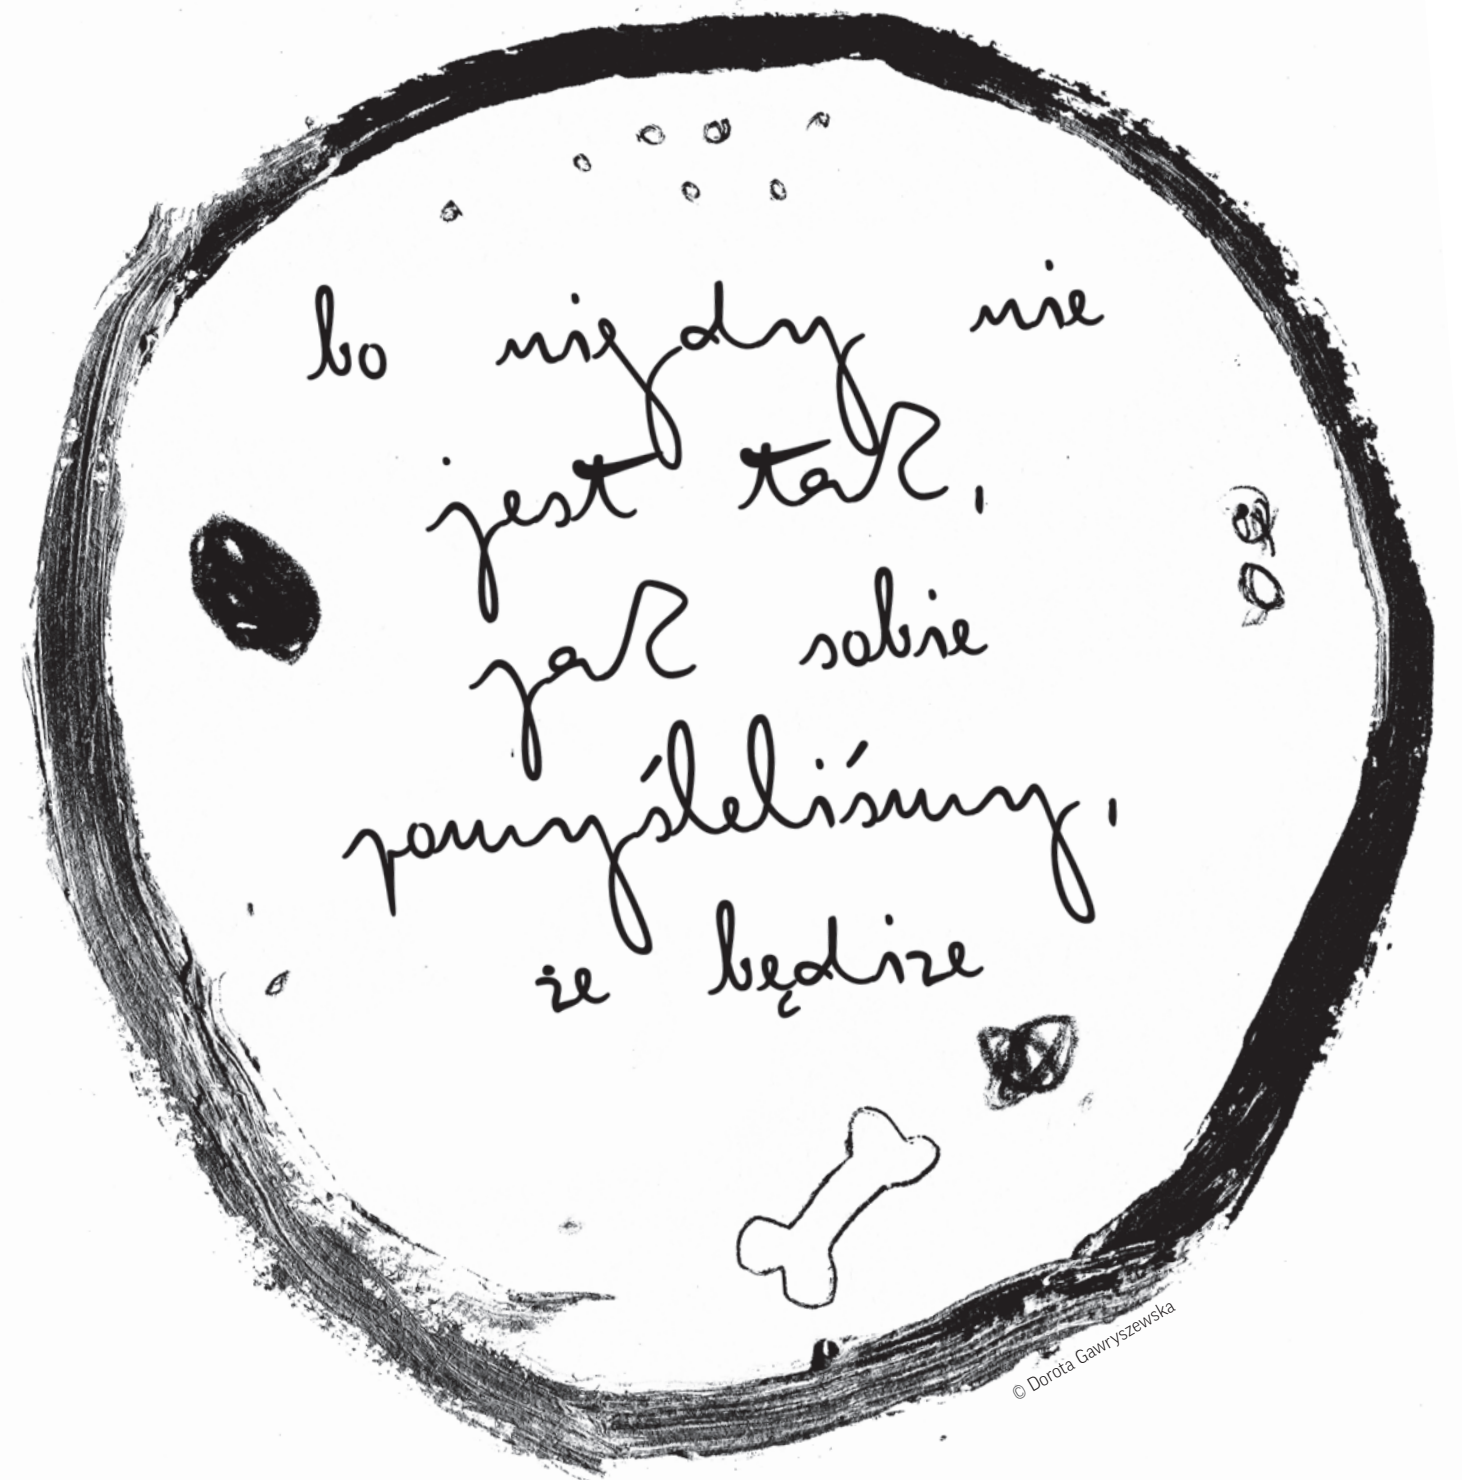 bo nigdy nie
jest tak,
jak sobie
pomyśleliśmy,
że będize
© Dorota Gawryszewska